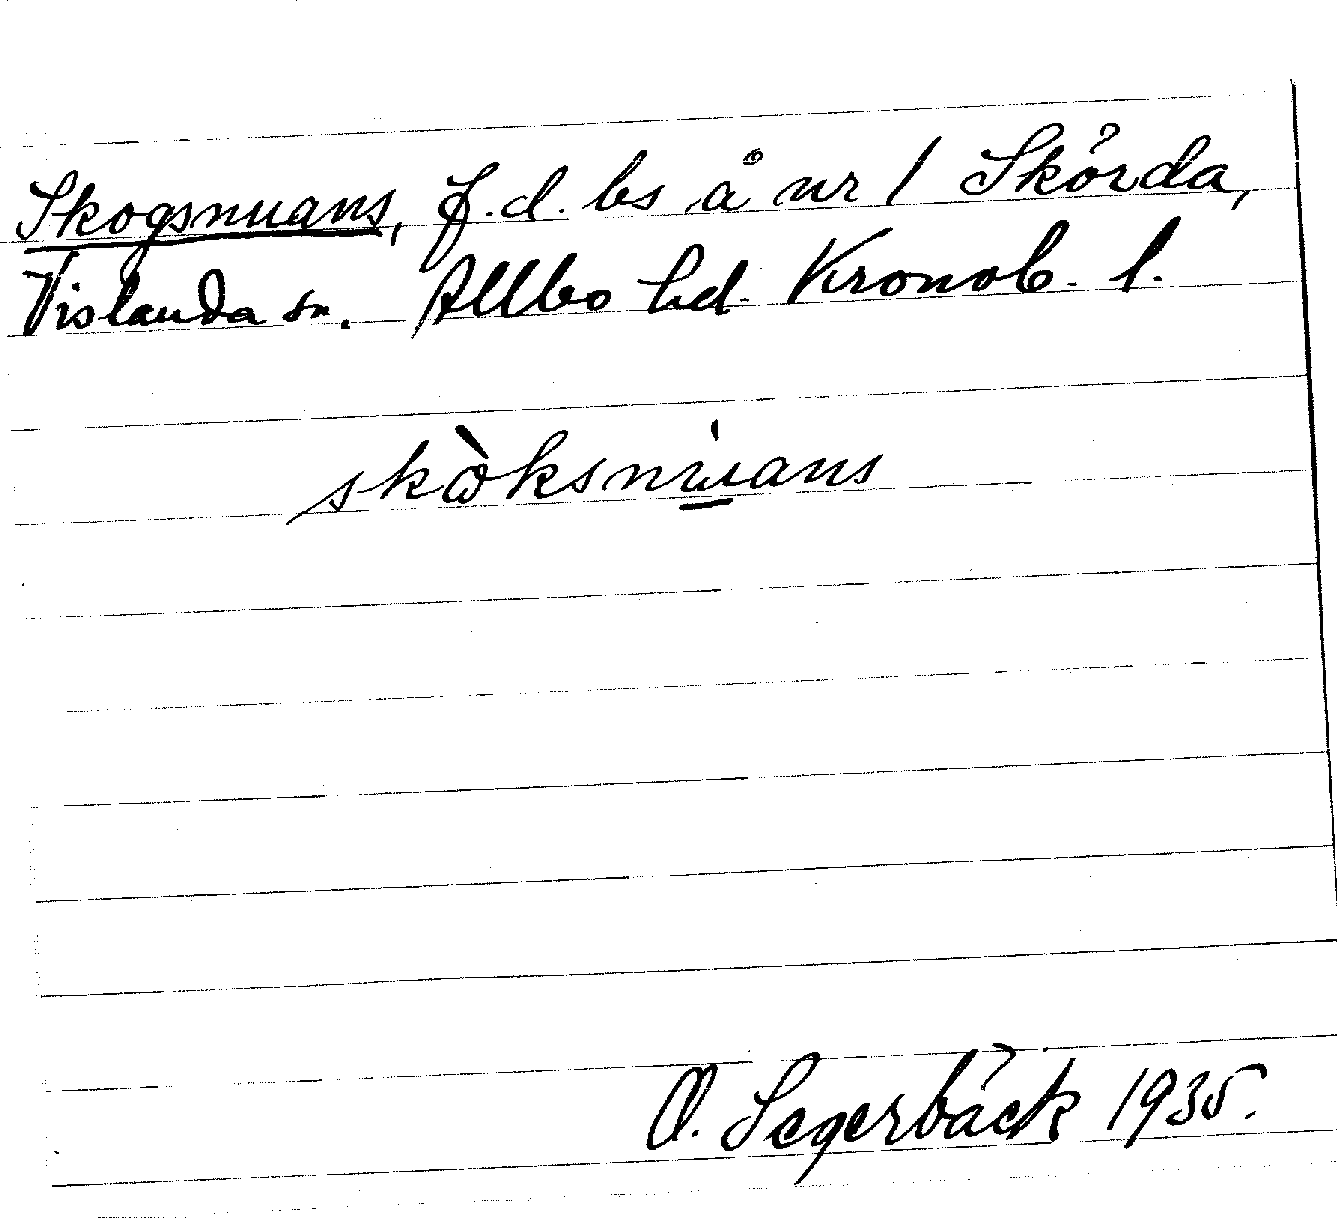 Skogsnuans, f.d. bs å nr 1 Skörda,
Vislanda sn. Allbo hd. Kronob. l.
skòksnu̱ans
O. Segerbäck 1935.